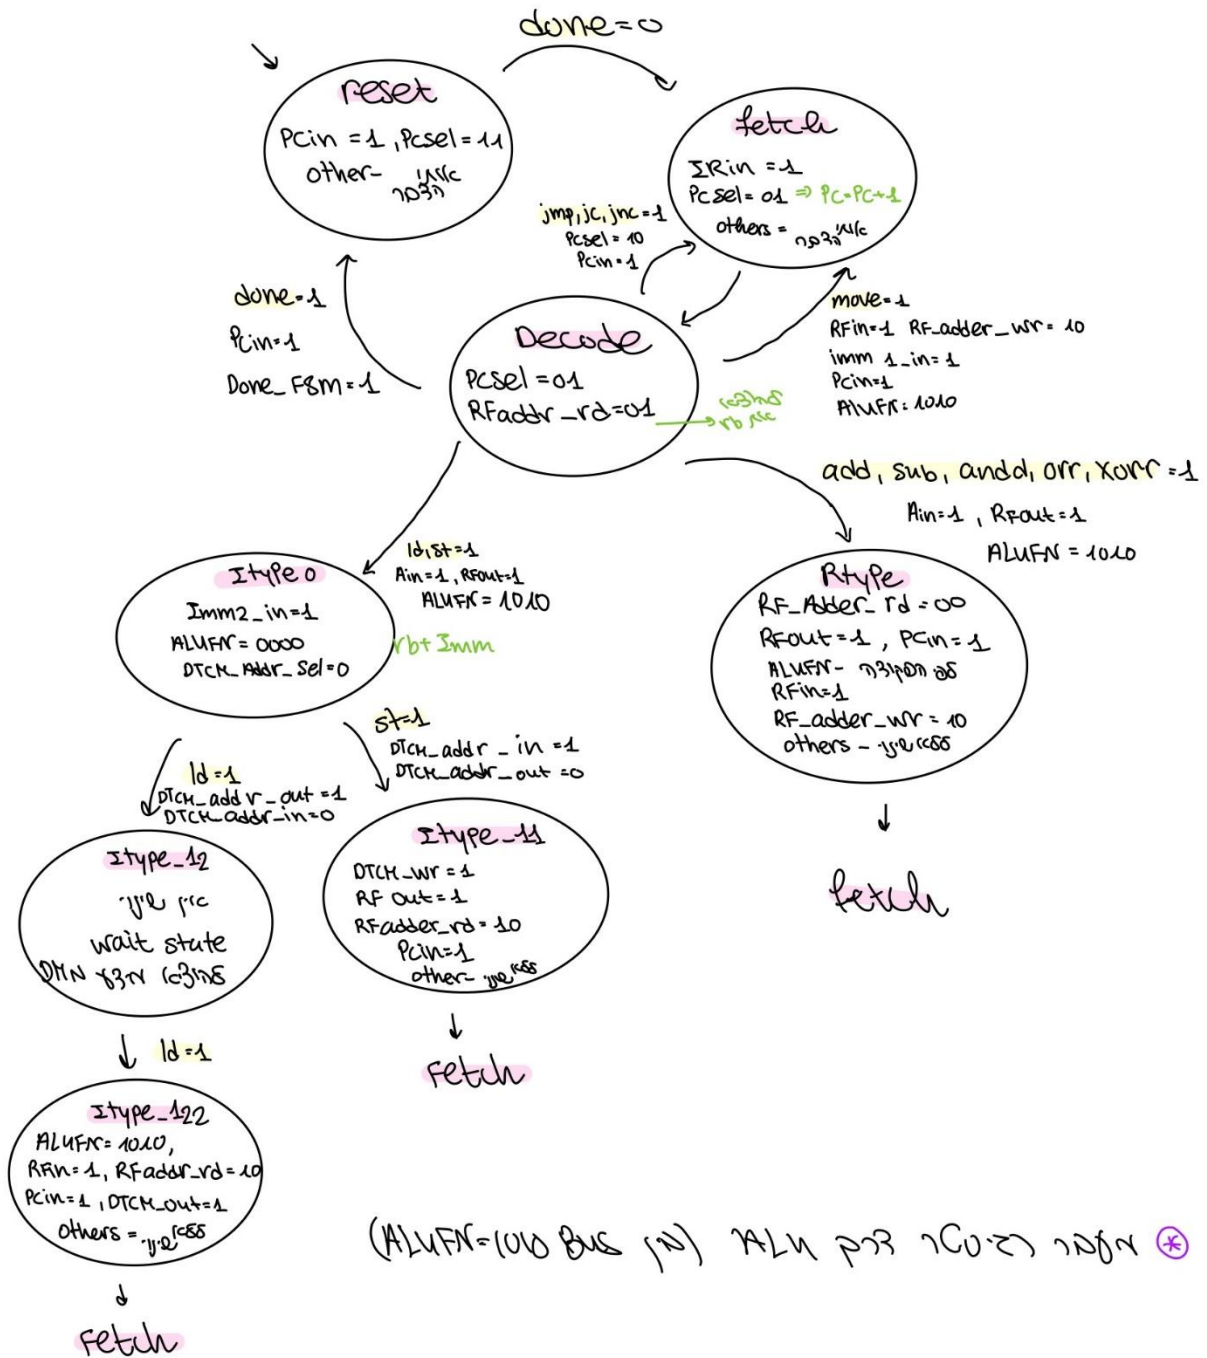 done=0
reset
PCin =1 ,PCsel=11
other-
fetch
IRin =1
PCsel= 01 => PC=PC+1
others =
jmp,jc,jnc=1
PCsel= 10
PCin=1
done=1
PCin=1
Done_FSM=1
Decode
PCsel =01
RFaddr_rd=01
move=1
RFin=1 RF_adder_wr= 10
imm 1_in=1
PCin=1
ALUFN=1010
add, sub, andd, orr, xorr =1
Ain=1 , RFout=1
ALUFN =1010
ld,st=1
Ain=1, RFout=1
ALUFN=1010
Itype0
Imm2_in=1
ALUFN= 0000
DTCM_Addr_Sel=0
rb+Imm
Rtype
RF_Adder_rd =00
RFout=1 , PCin=1
ALUFN-
RFin=1
RF_adder_wr=10
others -
fetch
st=1
DTCM_addr_in =1
DTCM_addr_out =0
ld=1
DTCM_addr_out=1
DTCM_addr_in=0
Itype_12
אין שינוי
wait state
Itype_11
DTCM_wr=1
RF out=1
RFadder_rd=10
PCin=1
other-
fetch
ld=1
Itype_122
ALUFN= 1010,
RFin=1, RFaddr_rd=10
PCin=1 ,DTCM_out=1
others =
fetch
* מעבר רגיסטר דרך ALU (מן BUS ALUFN=1010)